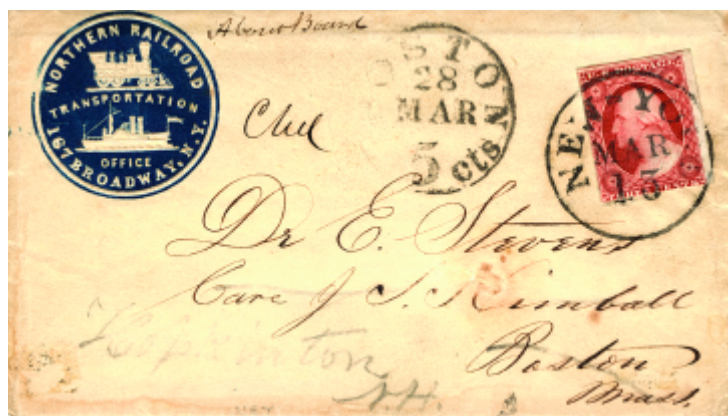 NORTHERN RAILROAD
TRANSPORTATION
OFFICE
167 BROADWAY, N.Y.
BOSTON
28
MAR
5 cts
NEW-YO
MAR
13
Dr E. Stevens
Care J. S. Kimball
Boston
Mass.
Hopkinton
N.H.